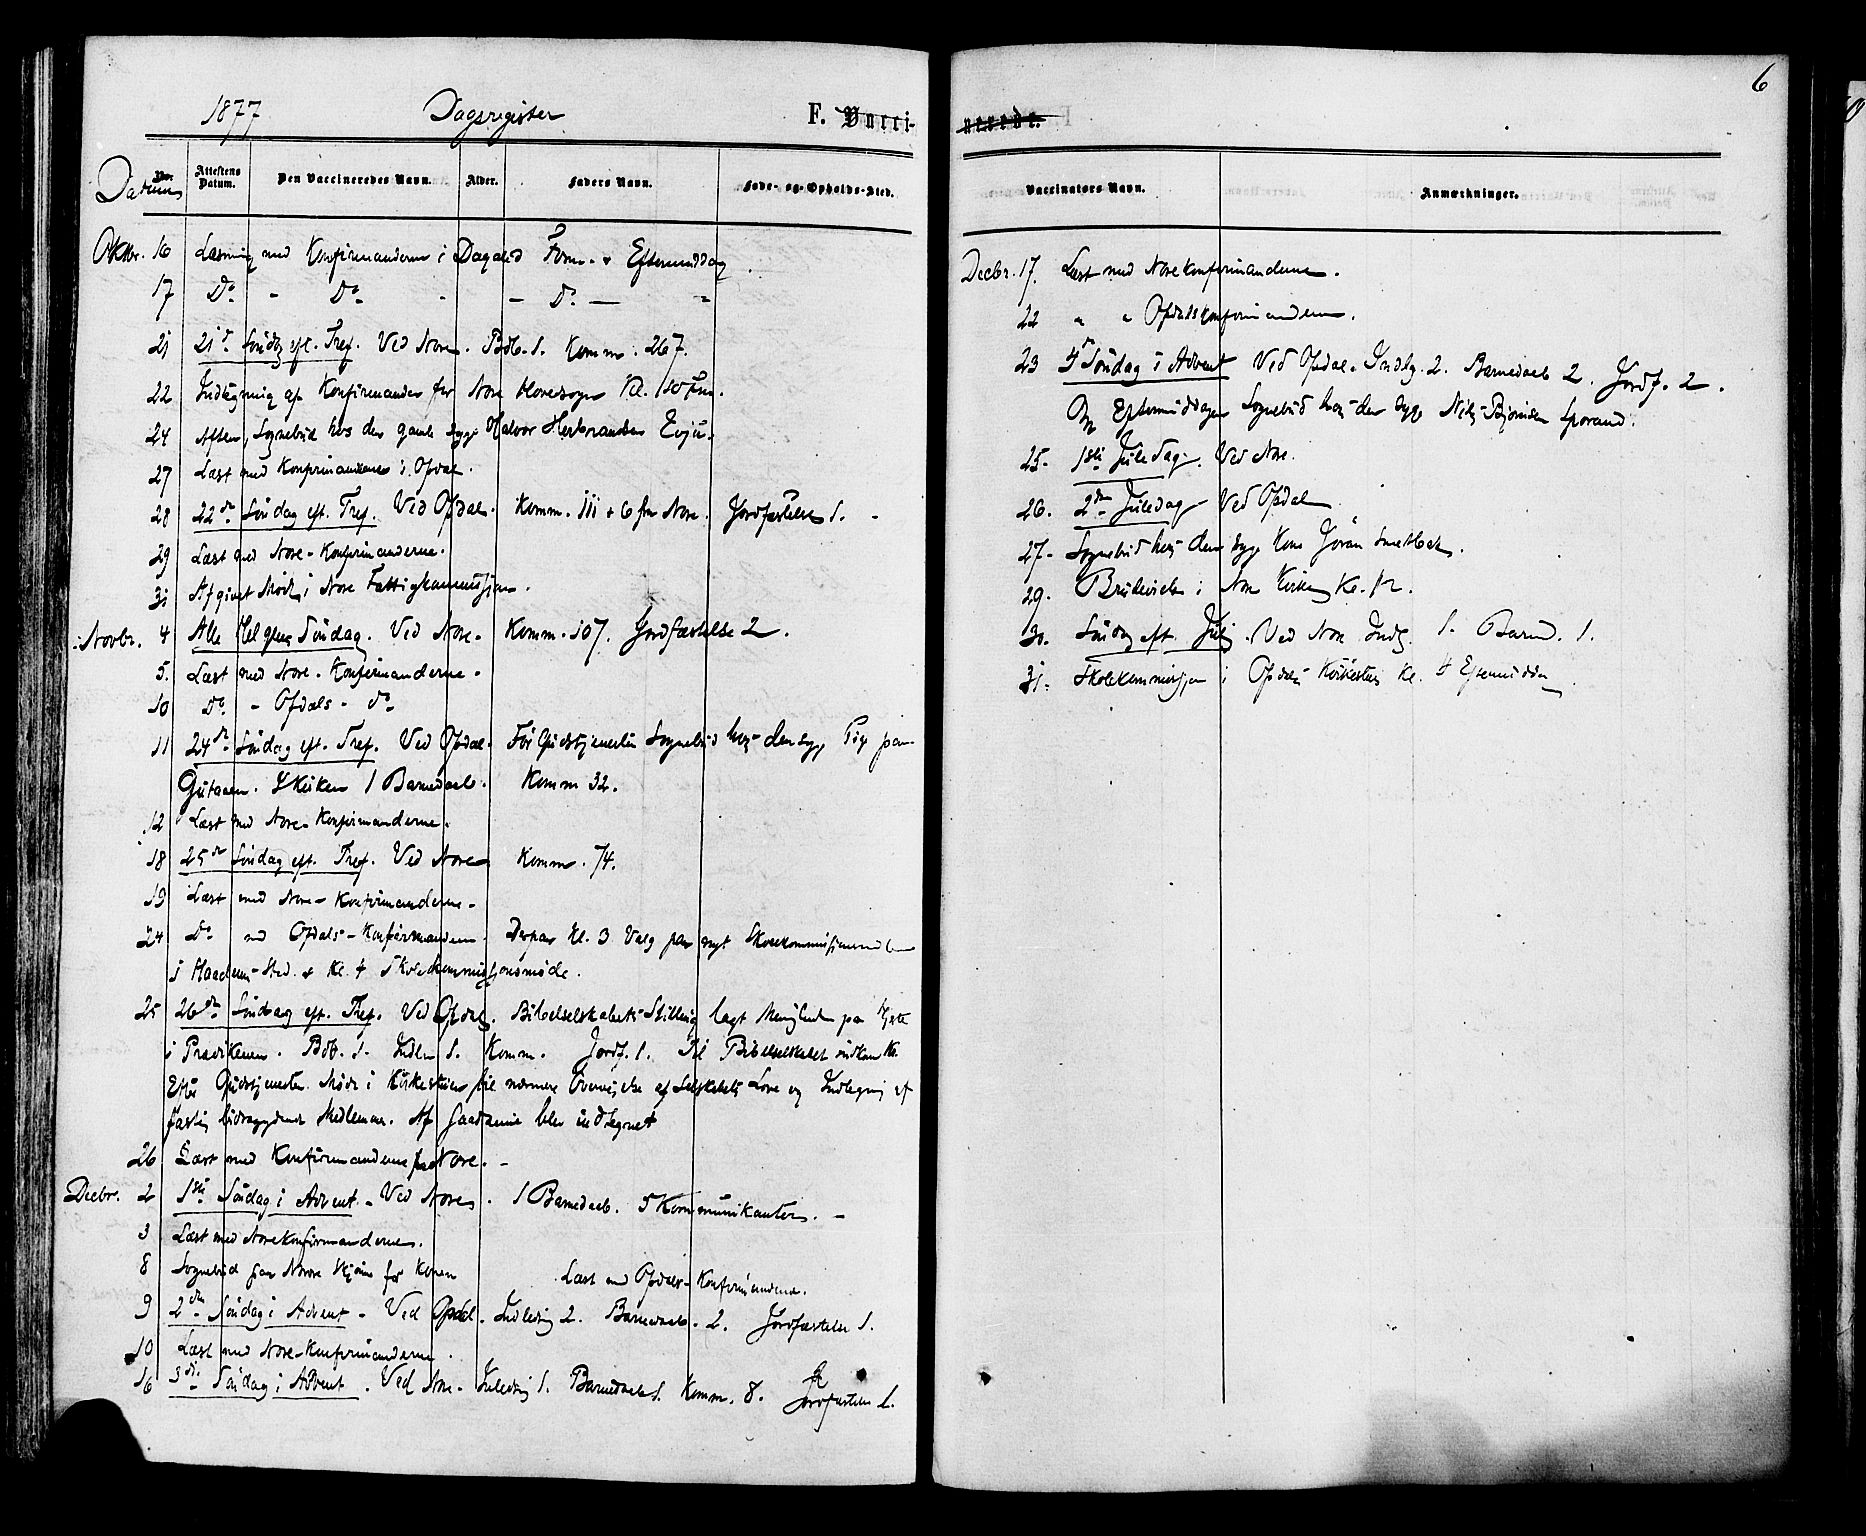 1877 Dagsregister F. Vacci-
Datum No. Attestens Datum. Den Vaccineredes Navn. Alder. Faders Navn. Føde- og Opholds-Sted.
Oktbr. 16 Læsning med Konfirmanderne i Form. & Eftermiddag.
17 Do. - Do. - - Do. — "
21 21de Søndag eft. Tref. Ved Nore. Bdb. 1. Komm. 267.
22 af Konfirmander for Nore Hovedsogn Kl. 10 Fm.
24 Aften, Sognebud hos den gamle syge Halvor Herbrandsen Evju.
27 Læst med Konfirmanderne i Opdal.
28 22de Søndag eft. Tref. Ved Opdal. Komm. 111 + 6 fra Nore. Jordfæstelse 1. -
29 Læst med Nore-Konfirmanderne.
31 Afgivet Møde i Nore Fattigkommissjon.
Novbr. 4 Alle Helgens Søndag. Ved Nore. Komm. 107. Jordfæstelse 2.
5. Læst med Nore-Konfirmanderne.
10 Do. - Opdals- do.
11 24de Søndag eft. Tref. Ved Opdal. Før Gudstjenesten Sognebud hos den syge Pige paa
. I Kirken 1 Barnedaab. Komm 32.
12 Læst med Nore-Konfirmanderne.
18 25de Søndag eft. Tref. Ved Nore Komm. 74.
19 Læst med Nore-Konfirmanderne.
24 Do. med Opdals-Konfirmanderne. Derpaa Kl. 3 Valg paa nyt
i Sted. & Kl. 4 Skolekommissjonsmøde.
25 26de Søndag eft. Tref. Ved Opdal. Bibelselskabets Stilling lagt Menigheden paa Hjerte
i Prædikenen. Bdb. 1. Indledn 1. Komm. Jordf. 1. Til Bibelselskabet indkom Kr.
Efter Gudstjenesten Møde i Kirkestuen til nærmere Overveielse af Selskabets Love og Indtegning af
faste bidragydende Medlemmer. Af saadanne blev indtegnet
26 Læst med Konfirmanderne fra Nore. -
Decbr. 2 1ste Søndag i Advent. Ved Nore. 1 Barnedaab. 5 Kommunikanter. -
3 Læst med Norekonfirmanderne.
8 Sognebud paa Nørre for Konen Læst med Opdals-Konfirmanderne.
9 2den Søndag i Advent - Ved Opdal. Indledning 2. Barnedaab. 2. Jordfæstelse 1.
10 Læst med Nore-Konfirmanderne.
16 3die Søndag i Advent. Ved Nore. Indledning 1. Barnedaab 1. Komm. 8. Jordfæstelse 1.
6
nerede.
Vaccinators Navn. Anmærkninger.
Decbr. 17. Læst med Norekonfirmanderne.
22 " " Opdalskonfirmanderne.
23 4de Søndag i Advent Ved Opdal. Indlg. 2. Barnedaab 2. Jordf. 2.
Om Eftermiddagen Sognebud hos den syge Sporand.
25. 1ste Juledag. Ved Nore.
26. 2den Juledag Ved Opdal
27. Sognebud hos den syge Kone Jøran
29. Brudevielse i Nore Kirke Kl. 12.
30. Søndag eft. Jul. Ved Nore. Indl. 1. Barned. 1.
31. Skolekommissjon i Opdals Kirkestue Kl. 4 Eftermiddag.